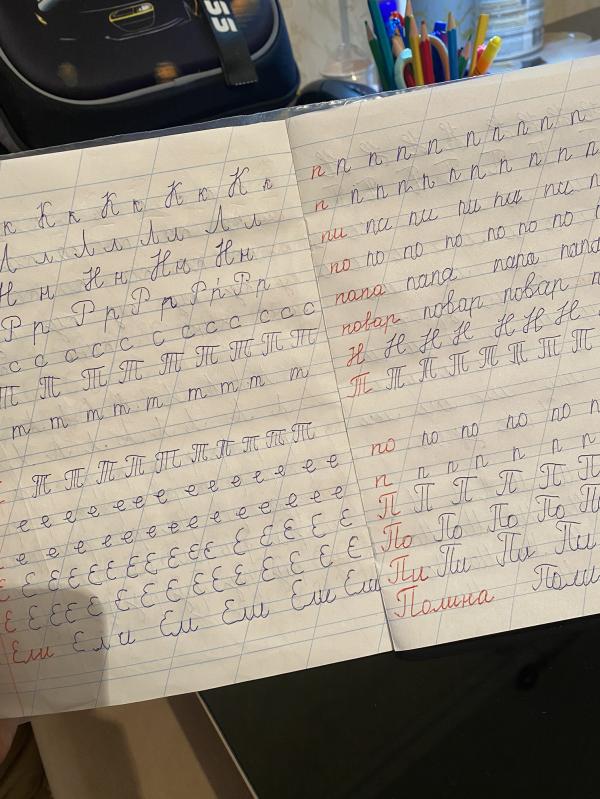 SS
к К к К к К к К к
Л Л л Л л Л л Л л
Н н Н н Н н Н н
Р р Р р Р р Р р Р р
с с с с с с с с с с с с
Т Т Т Т Т Т Т Т Т
т т т т т т т т т
Т Т Т Т Т Т Т Т Т
е е е е е е е е е е е е е е
е е е е е е е е е е е е е е
Е Е Е Е Е Е Е Е Е Е Е Е Е Е
Е Е Е Е Е Е Е Е Е Е Е Е Е
Ели Ели Ел Ели Ели Ели
п п п п п п п п п п
п п п п п п п п п п п
пи пи пи пи пи пи пи
по по по по по по по по
папа папа папа папа
повар повар повар
Н Н Н Н Н Н Н Н
Т Т Т Т Т Т Т Т
по по по по по по
п п п п п п п п
П П П П П П
По По По По По
Пи Пи Пи Пи
Полина Поли